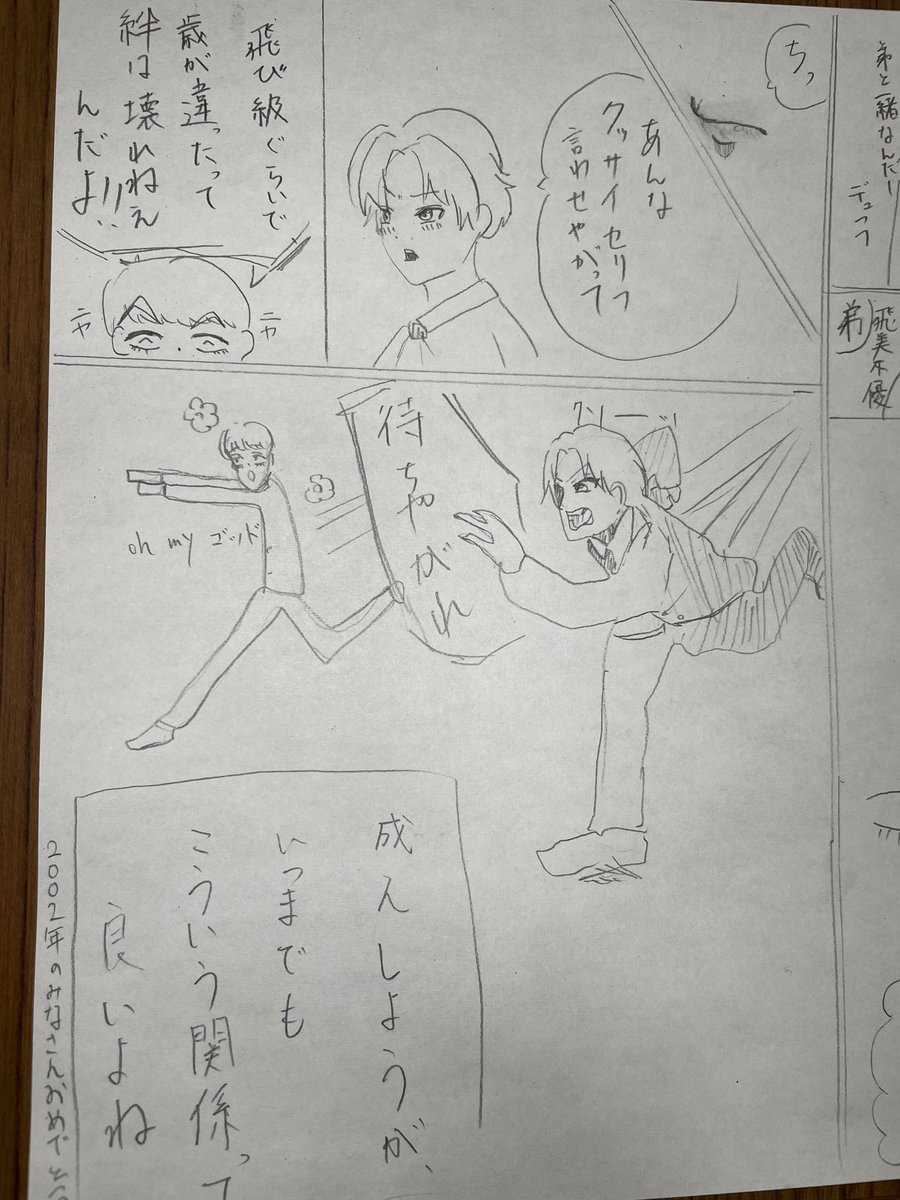 弟と一緒なんだ!!
デュフフ
弟
ちっ
あんな
クッサイセリフ
言わせやがって
飛び級ぐらいで
歳が違ったって
絆は壊れねえ
んだよ!!
ニヤ
ニヤ
待ちやがれ
oh my ゴッド
成人しようが、
いつまでも
こういう関係って
良いよね
2002年のみなさんおめでとう